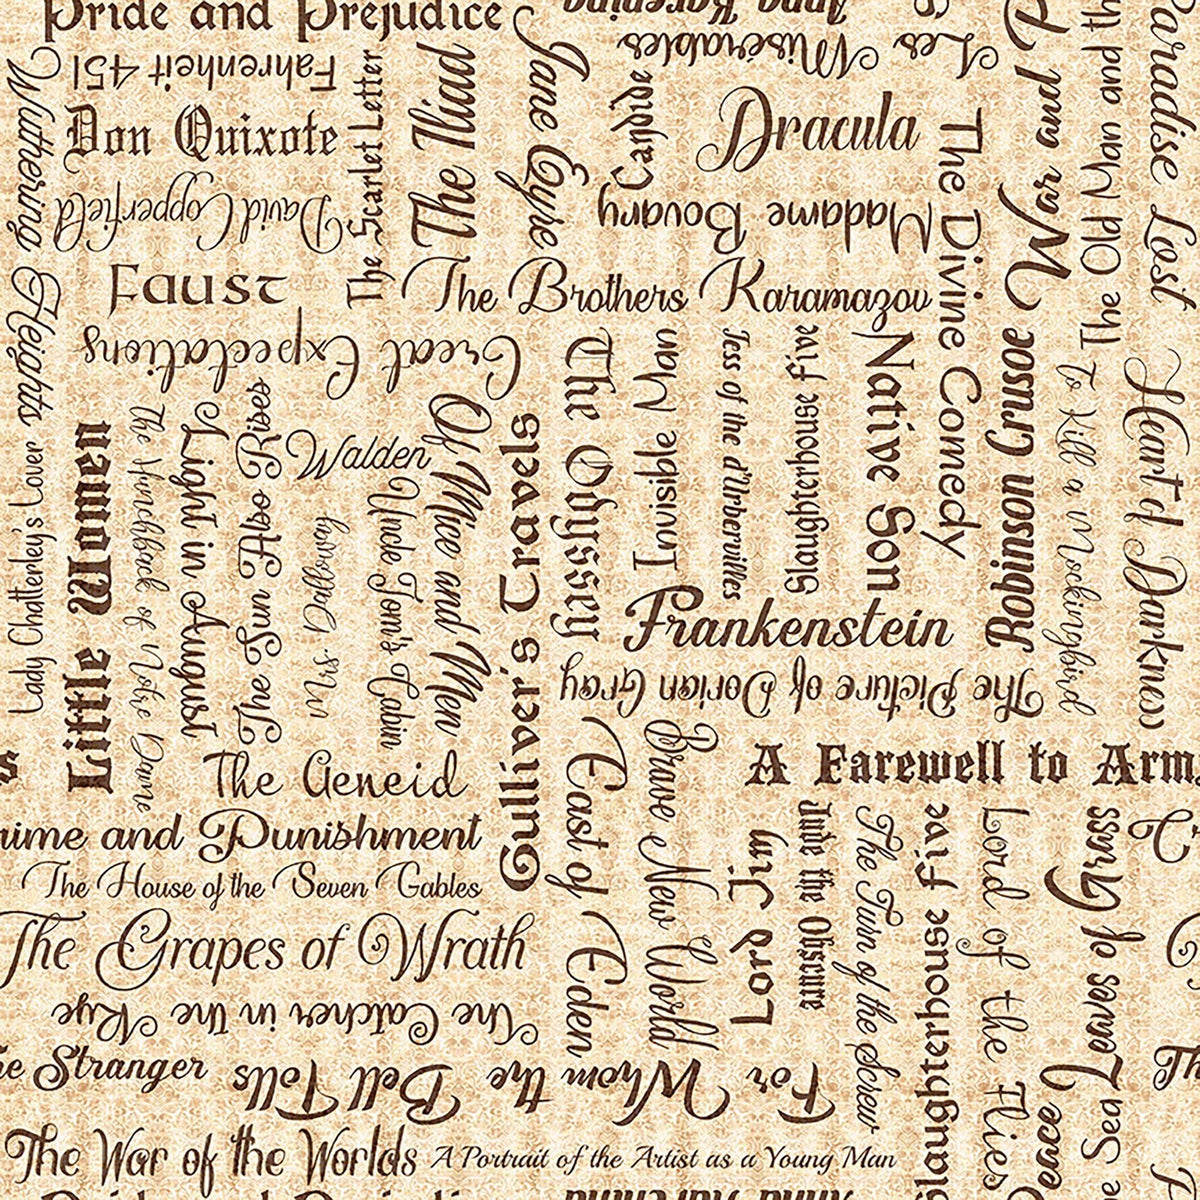 Pride and Prejudice
Anna Karenina
Les Misérables
War and P
Paradise Lost
Fahrenheit 451
Wuthering Heights
Don Quixote
The Scarlet Letter
The Iliad
Jane Eyre
Candide
Dracula
The Divine Comedy
The Old Man and th
David Copperfield
Madame Bovary
Faust
The Brothers Karamazov
Great Expectations
The Odyssey
Invisible Man
Tess of the d'Urbervilles
Slaughterhouse Five
Native Son
Robinson Crusoe
To Kill a Mockingbird
Heart of Darkness
Lady Chatterley's Lover
Little Women
The Hunchback of Notre Dame
Light in August
The Sun Also Rises
Walden
Mrs. Dalloway
Uncle Tom's Cabin
Of Mice and Men
Gulliver's Travels
Frankenstein
The Picture of Dorian Gray
s
The Aeneid
East of Eden
Brave New World
A Farewell to Arm
rime and Punishment
The House of the Seven Gables
Lord Jim
Jude the Obscure
The Turn of the Screw
Slaughterhouse Five
Lord of the Flies
Leaves of Grass
The Grapes of Wrath
The Catcher in the Rye
he Stranger
For Whom the Bell Tolls
Peace
e Sea
Th
The War of the Worlds
A Portrait of the Artist as a Young Man
Pride and Prejudice
Anna Karenina